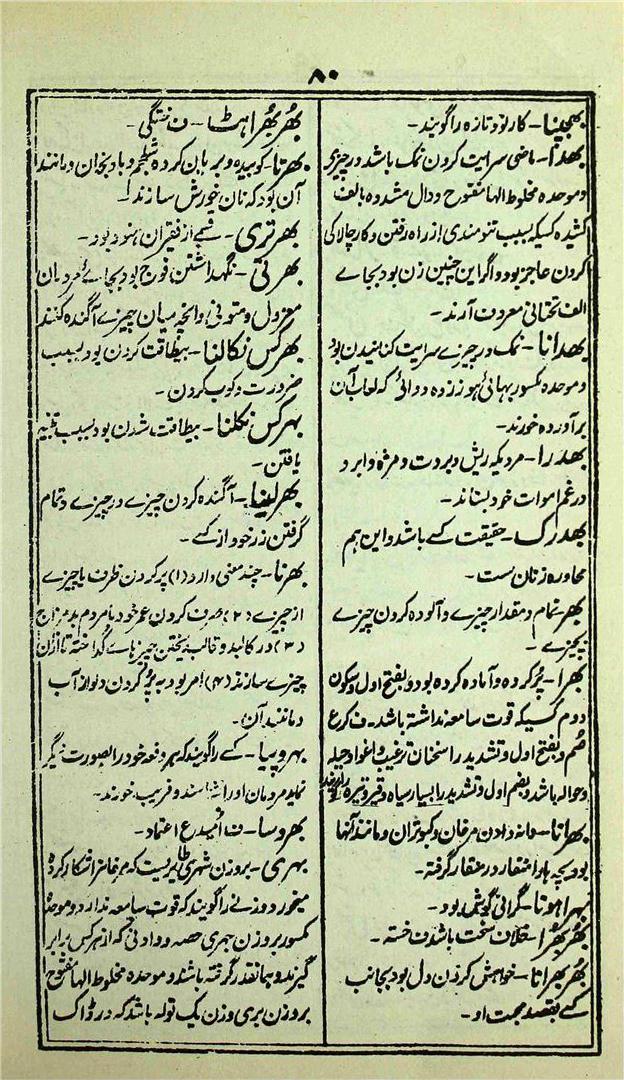 ۸۰
بھجینا۔ کار نو و تازہ را گویند۔
بھدنا۔ ماضی سرایت کردن نمک باشد در چیزی
و موحدہ مخلوط الہا مفتوح و دال مشددہ بالف
کشیدہ کسیکہ بسبب تنومندی از راہ رفتن و کار چالاکی
کردن عاجز بود و اگر این چنین زن بود بجاے
الف تحتانی معروف آرند۔
بھدانا۔ نمک در چیزے سرایت کنانیدن بود
و موحدہ مکسور بہائے ہوز زدہ دوائے کہ لعاب آن
برآوردہ خورند۔
بھدرا۔ مردیکہ ریش و بروت و مژہ و ابرو
در غم اموات خود بستاند۔
بھدرک۔ حقیقت کسے باشد و این ہم
محاورہ زنان ست۔
بھر تمام و مقدار چیزے و آلودہ کردن چیزے
بچیزے۔
بھرا۔ پُر کردہ و آمادہ کردہ بود و بفتح اول و سکون
دوم کسیکہ قوت سامعہ نداشتہ باشد۔ ف کر ع
صم و بفتح اول و تشدید را سخنان ترغیب و اغوا و حیلہ
و حوالہ باشد و بضم اول و تشدید را بسیار سیاہ و قیر و تیرہ
بھرانا۔ دانہ دادن مرغان و کبوتران و مانند آنہا
بود بچہ ہا را منقار در منقار گرفتہ۔
بہرا ہونا۔ گرانی گوش بود۔
بھُربھُرا۔ خلاف سخت باشد ف خستہ۔
بھُربھرانا۔ خواہش کردن دل بود بجانب
کسے بقصد محبت او۔
بھُربھُراہٹ۔ ف خستگی۔
بھرتا۔ کوبیدہ و بریان کردہ شلجم و بادنجان و مانند
آن بود کہ نان خورش سازند۔
بھرتری۔ قسمے از فقیران ہنود بود۔
بھرتی۔ نگہداشتن فوج بود بجاے مردمان
معزول و متوفی و انچہ میان چیزے آگندہ کنند
بھرکس نکالنا۔ بیطاقت کردن بود بسبب
ضرورت و کوب کردن۔
بہرکس نکلنا۔ بیطاقت شدن بود بسبب تنبیہ
یافتن۔
بھر لینا۔ آگندہ کردن چیزے در چیزے و تمام
گرفتن زر خود از کسے۔
بھرنا۔ چند معنی دارد (۱) پر کردن ظرف یا چیزے
از چیزے (۲) صرف کردن عمر خود با مردم بدمزاج
(۳) در کالبد و قالب ریختن چیزہاے گداختہ تا ازان
چیزے سازند (۴) امر بود بہ پُر کردن دلو از آب
و مانند آن۔
بہروپیا۔ کسے را گویند کہ ہر دفعہ خود را بصورت دیگر
نماید مردمان او را نشناسند و فریب خورند۔
بھروسا۔ ف اُمید ع اعتماد۔
بہری۔ بروزن شہری طایریست کہ مرغانرا شکار کردہ
میخورد و زنے را گویند کہ قوت سامعہ ندارد و موحدہ
مکسور بروزن جہری حصہ و دادنی کہ از ہر کس برابر
گیرند و ہمانقدر گرفتہ باشد و موحدہ مخلوط الہا مفتوح
بروزن بری وزن یک تولہ باشد کہ در ڈاک